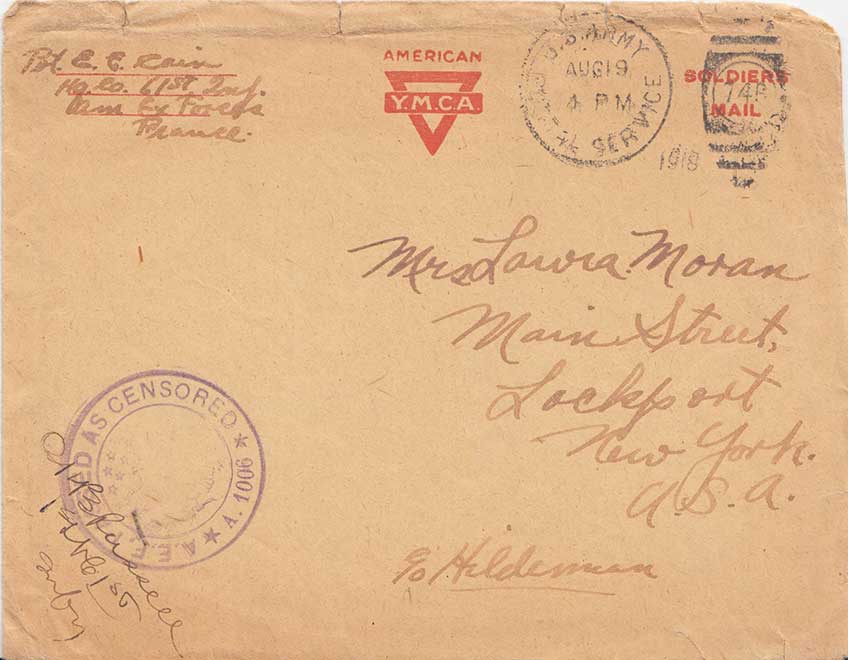 Pvt E. E. Rain
Hq. Co. 61st Inf.
Am Ex Forces
France.
AMERICAN
Y.M.C.A
U.S. ARMY
AUG 19
4 PM
SERVICE
1918
SOLDIERS
MAIL
Mrs Lawra Moran
Main Street,
Lockport
New York.
U.S.A.
c/o Hildeman
ED AS CENSORED
A.E.F.
A. 1006
61st